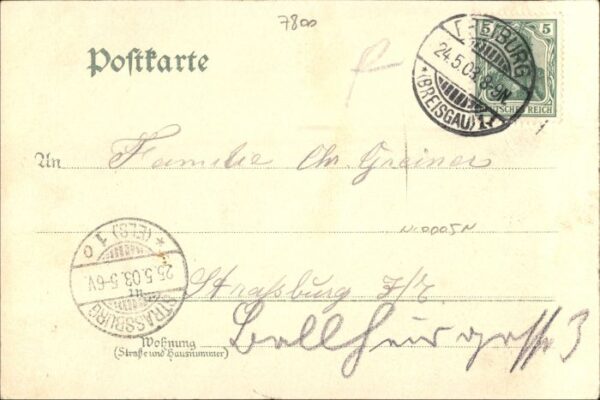 7800
Postkarte
FREIBURG
24.5.03. 8-9N
*(BREISGAU) 1 f
5 5
DEUTSCHES REICH
An Familie Chr. Greiner
N.0005N
*(ELS) 1 c
25.5.03. 5-6V.
STRASSBURG
Straßburg
in
Wohnung
(Straße und Hausnummer)
3